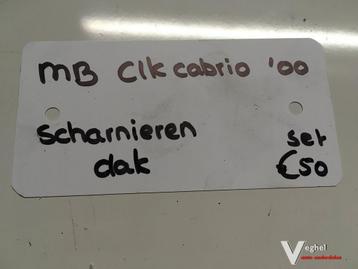 MB Clk cabrio '00
scharnieren set
dak €50
Veghel
auto-onderdelen